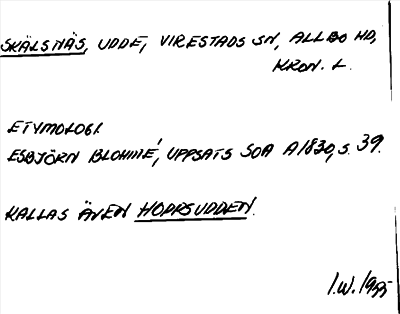 SKÄLSNÄS, UDDE, VIRESTADS SN, ALLBO HD,
KRON. L.
ETYMOLOGI.
ESBJÖRN BLOHMÉ, UPPSATS SOA A1830, S. 39.
KALLAS ÄVEN HORRSUDDEN.
I.W. 1955